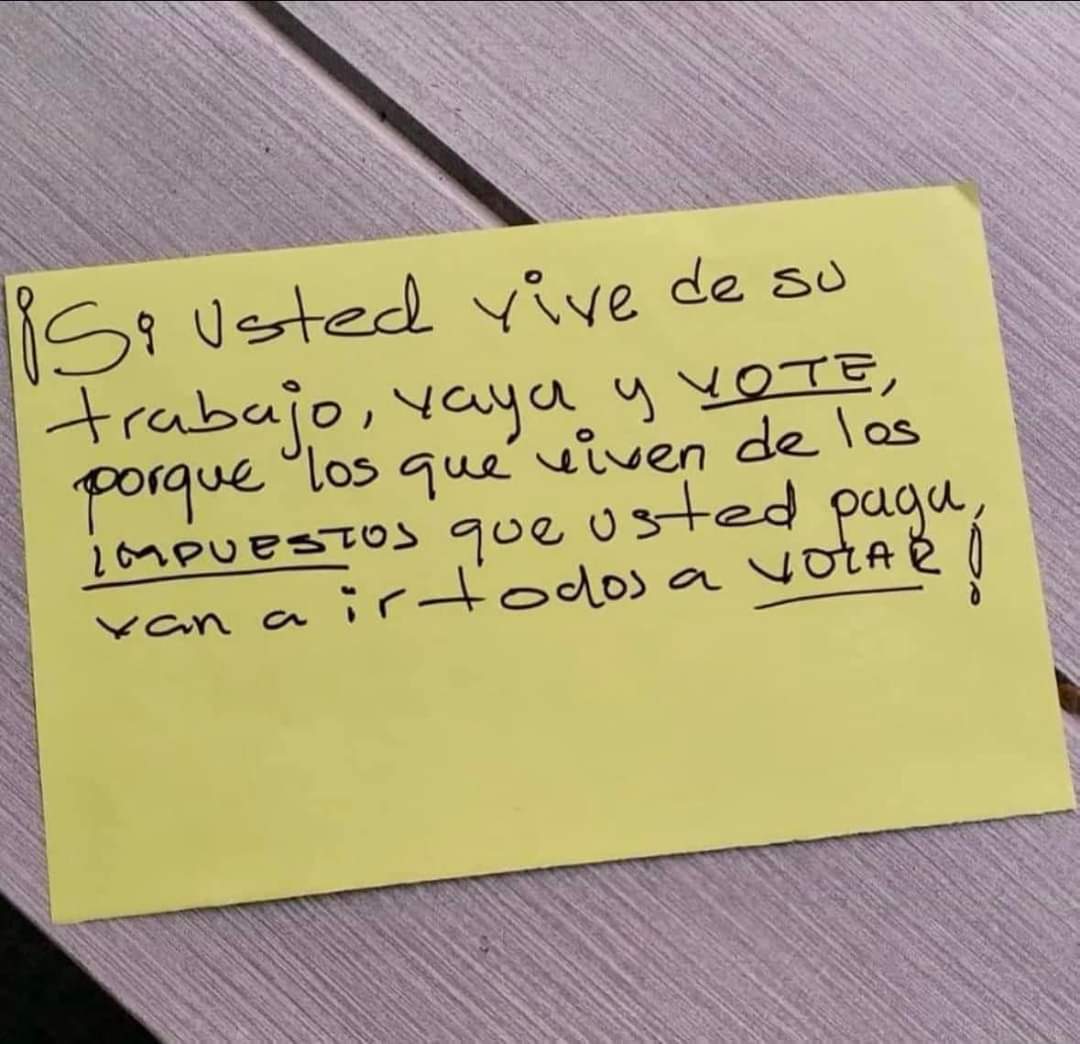 ¡Si Usted vive de su
trabajo, vaya y VOTE,
porque los que viven de los
IMPUESTOS que usted paga,
van a ir todos a VOTAR!